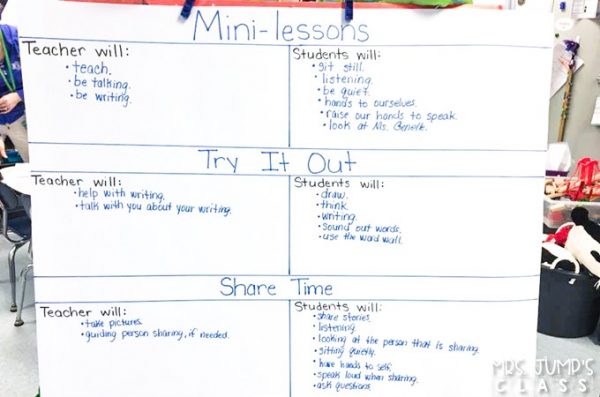 Mini-lessons
Teacher will:
• teach.
• be talking.
• be writing.
Students will:
• sit still.
• listening.
• be quiet.
• hands to ourselves.
• raise our hands to speak.
• look at Ms.
Try It Out
Teacher will:
• help with writing.
• talk with you about your writing.
Students will:
• draw.
• think.
• writing.
• sound out words.
• use the word wall.
Share Time
Teacher will:
• take pictures.
• guiding person sharing, if needed.
Students will:
• share stories.
• listening.
• looking at the person that is sharing.
• sitting quietly.
• have hands to self.
• speak loud when sharing.
• ask questions.
MRS. JUMP'S
CLASS